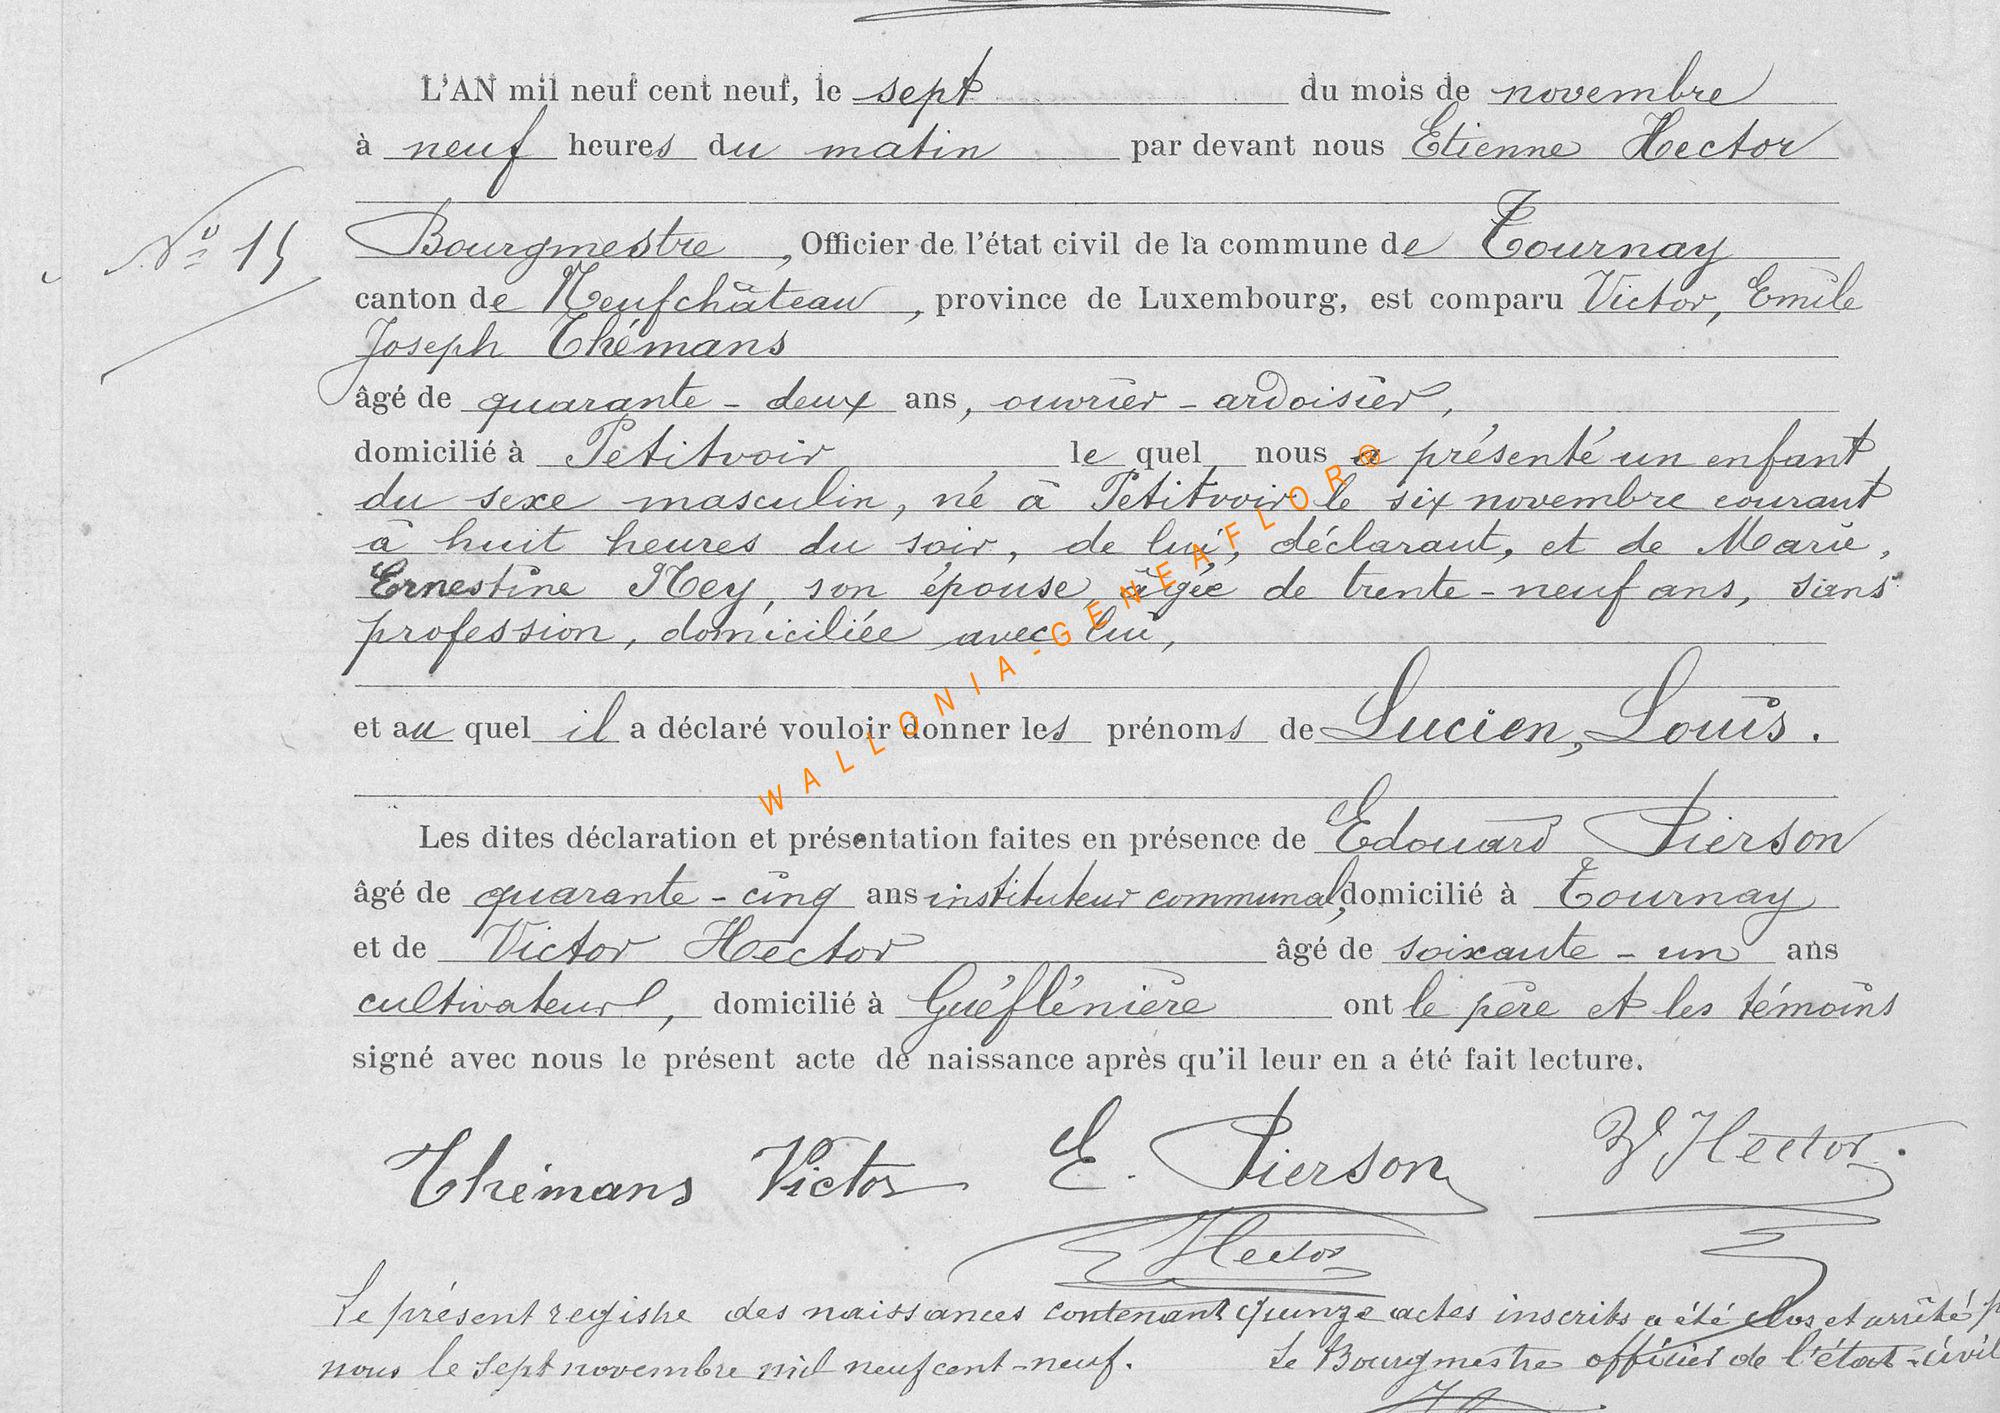 L'AN mil neuf cent neuf, le sept du mois de novembre
à neuf heures du matin par devant nous Etienne Hector
No 15
Bourgmestre, Officier de l'état civil de la commune de Tournay
canton de Neufchâteau, province de Luxembourg, est comparu Victor, Emile
Joseph Thémans
âgé de quarante-deux ans, ouvrier-ardoisier,
domicilié à Petitvoir le quel nous a présenté un enfant
du sexe masculin, né à Petitvoir le six novembre courant
à huit heures du soir, de lui, déclarant, et de Marie,
Ernestine Ney, son épouse âgée de trente-neuf ans, sans
profession, domiciliée avec lui,
et au quel il a déclaré vouloir donner les prénoms de Lucien, Louis.
WALLONIA-GENEAFLOR®
Les dites déclaration et présentation faites en présence de Edouard Pierson
âgé de quarante-cinq ans instituteur communal, domicilié à Tournay
et de Victor Hector âgé de soixante-un ans
cultivateur, domicilié à Guéflénière ont le père et les témoins
signé avec nous le présent acte de naissance après qu'il leur en a été fait lecture.
Thémans Victor E. Pierson V Hector
Hector
Le présent registre des naissances contenant quinze actes inscrits a été clos et arrêté p
nous le sept novembre mil neuf cent-neuf. Le Bourgmestre officier de l'état-civil